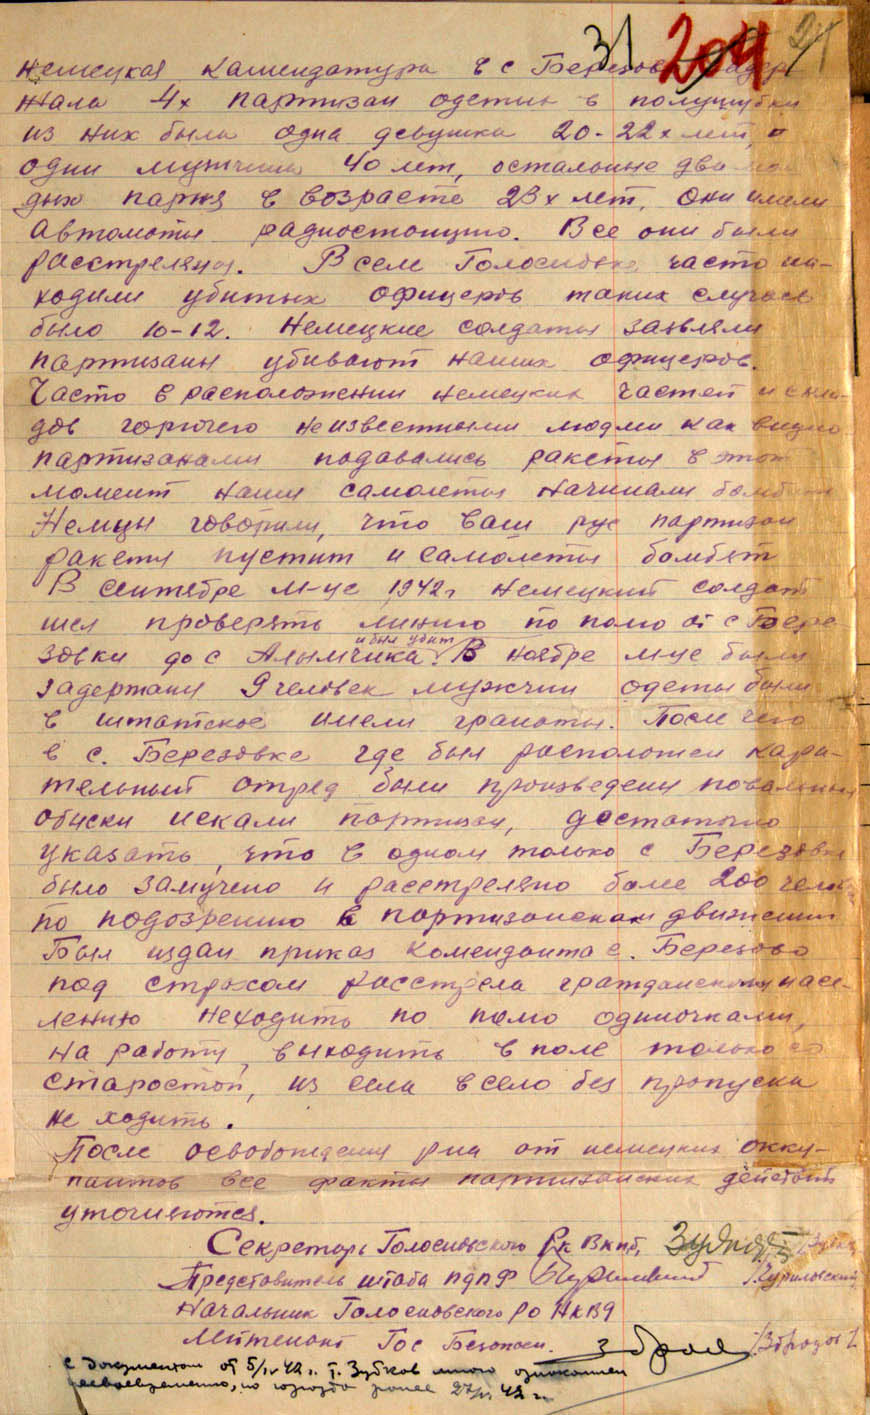 31 204
немецкая камендатура в с Березов
жала 4х партизан одетых в полушубки
из них была одна девушка 20-22х лет, и
один мужчина 40 лет, остальные два
дых парня в возрасте 23х лет, они имели
автоматы радиостанцию. Все они были
расстреляны. В селе Голосиловка часто на-
ходили убитых офицеров таких случаев
было 10-12. Немецкие солдаты заявляли
партизаны убивают наших офицеров.
Часто в расположении немецких частей и скла-
дов горючего неизвестными людми как видно
партизанами подавались ракеты в этот
момент наши самолеты начинали бомбить
Немцы говорили, что ваш рус партизан
ракети пустит и самолеты бомбят
В сентябре м-це 1942г немецкий солдат
шел проверять линию по полю от с Бере-
зовки до с Алымчика и был убит. В ноябре м-це были
задержаны 9 человек мужчин одеты были
в штатское имели гранаты. После чего
в с. Березовке где был расположен кара-
тельный отряд были произведены повальные
обыски искали партизан, достаточно
указать, что в одном только с Березовке
было замучено и расстреляно более 200 челов
по подозрению в партизанском движении
Был издан приказ коменданта с. Березово
под страхом расстрела гражданскому насе-
лению неходить по полю одиночками,
на работу, выходить в поле только со
старостой, из села в село без пропуска
не ходить.
После освобождения р-на от немецких окку-
пантов все факты партизанских действий
уточняются.
Секретарь Голосновского Рк ВКпб,
Представитель штаба ПДПФ /Чуриловский/
Начальник Голосновского РО НКВД
Лейтенант Гос Безопасн. /Збродов/
с документом от 5/IV 42 г. т. Зубков мною ознакомлен